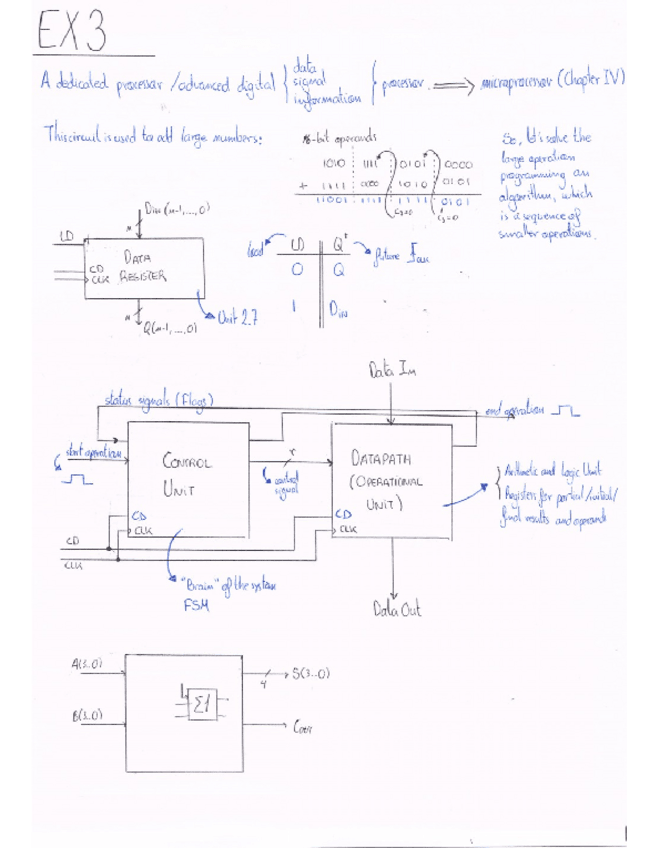 EX3
A dedicated processor / advanced digital { data signal information } processor. ⟹ microprocessor (Chapter IV)
This circuit is used to add large numbers:
-bit operands
1010 1111 0101 0000
+ 1111 0000 1010 0101
11001 1111 1111 0101
C3=0
So, let's solve the
large operation
programming an
algorithm, which
is a sequence of
smaller operations.
Din (n-1,...,0)
n
LD
DATA
REGISTER
CD
CLK
n
Q(n-1,...,0)
Unit 2.7
load
LD Q+
future
0 Q
1 Din
Data In
status signals (Flags)
end operation
start operation
CONTROL
UNIT
CD
CLK
r
control
signal
DATAPATH
(OPERATIONAL
UNIT)
CD
CLK
Arithmetic and Logic Unit
Registers for partial/initial/
final results and operands
CD
CLK
"Brain" of the system
FSM
Data Out
A(3..0)
B(3..0)
Σ1
4
S(3..0)
Cout